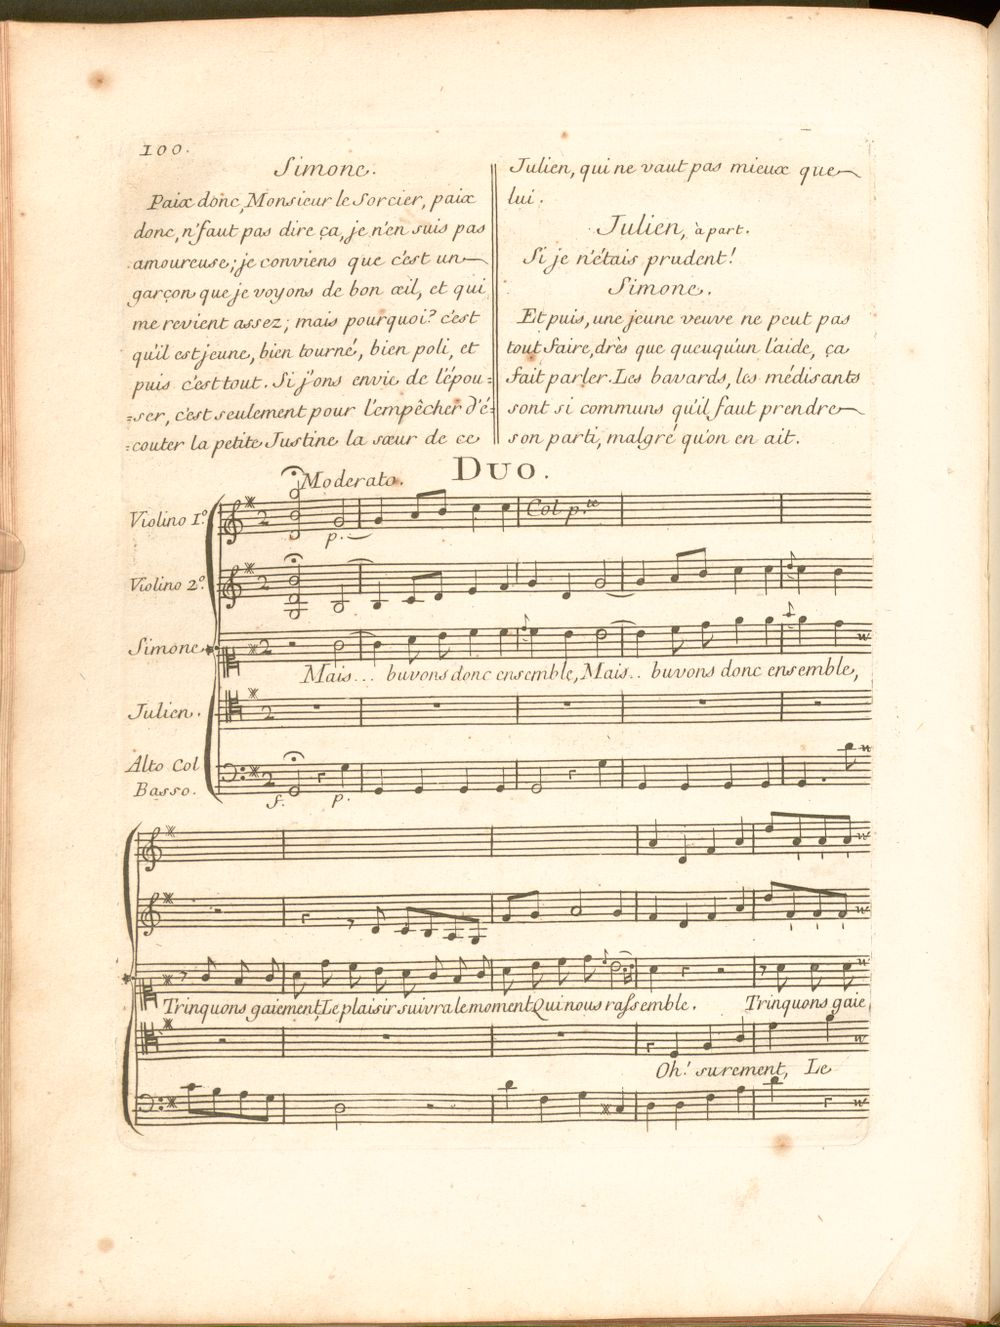 100.
Simone.
Paix donc, Monsieur le Sorcier, paix
donc, n'faut pas dire ça, je n'en suis pas
amoureuse; je conviens que c'est un
garçon que je voyons de bon œil, et qui
me revient assez; mais pourquoi? c'est
qu'il est jeune, bien tourné, bien poli, et
puis c'est tout. Si j'ons envie de l'épou=
=ser, c'est seulement pour l'empêcher d'é=
=couter la petite Justine la sœur de ce
Julien, qui ne vaut pas mieux que
lui.
Julien, à part.
Si je n'étais prudent!
Simone.
Et puis, une jeune veuve ne peut pas
tout faire, drès que queuqu'un l'aide, ça
fait parler. Les bavards, les médisants
sont si communs qu'il faut prendre
son parti, malgré qu'on en ait.
Duo.
Moderato.
Violino 1.º
2
p.
Col p.te
Violino 2.º
2
Simone
2
Mais... buvons donc ensemble, Mais.. buvons donc ensemble,
Julien.
2
Alto Col
Basso.
2
f. p.
Trinquons gaiement, Le plaisir suivra le moment Qui nous rassemble. Trinquons gaie
Oh! surement, Le